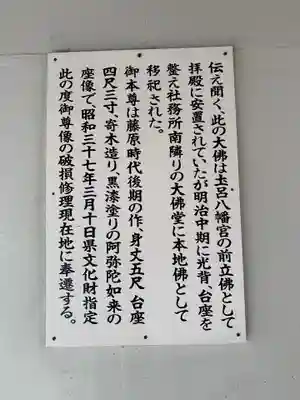 伝え聞く、此の大佛は土宮八幡宮の前立佛として
拝殿に安置されていたが明治中期に光背、台座を
整え社務所南隣りの大佛堂に本地佛として
移祀された。
御本尊は藤原時代後期の作、身丈五尺 台座
四尺三寸、寄木造り、黒漆塗りの阿弥陀如来の
座像で、昭和三十七年三月十日県文化財指定
此の度御尊像の破損修理現在地に奉遷する。